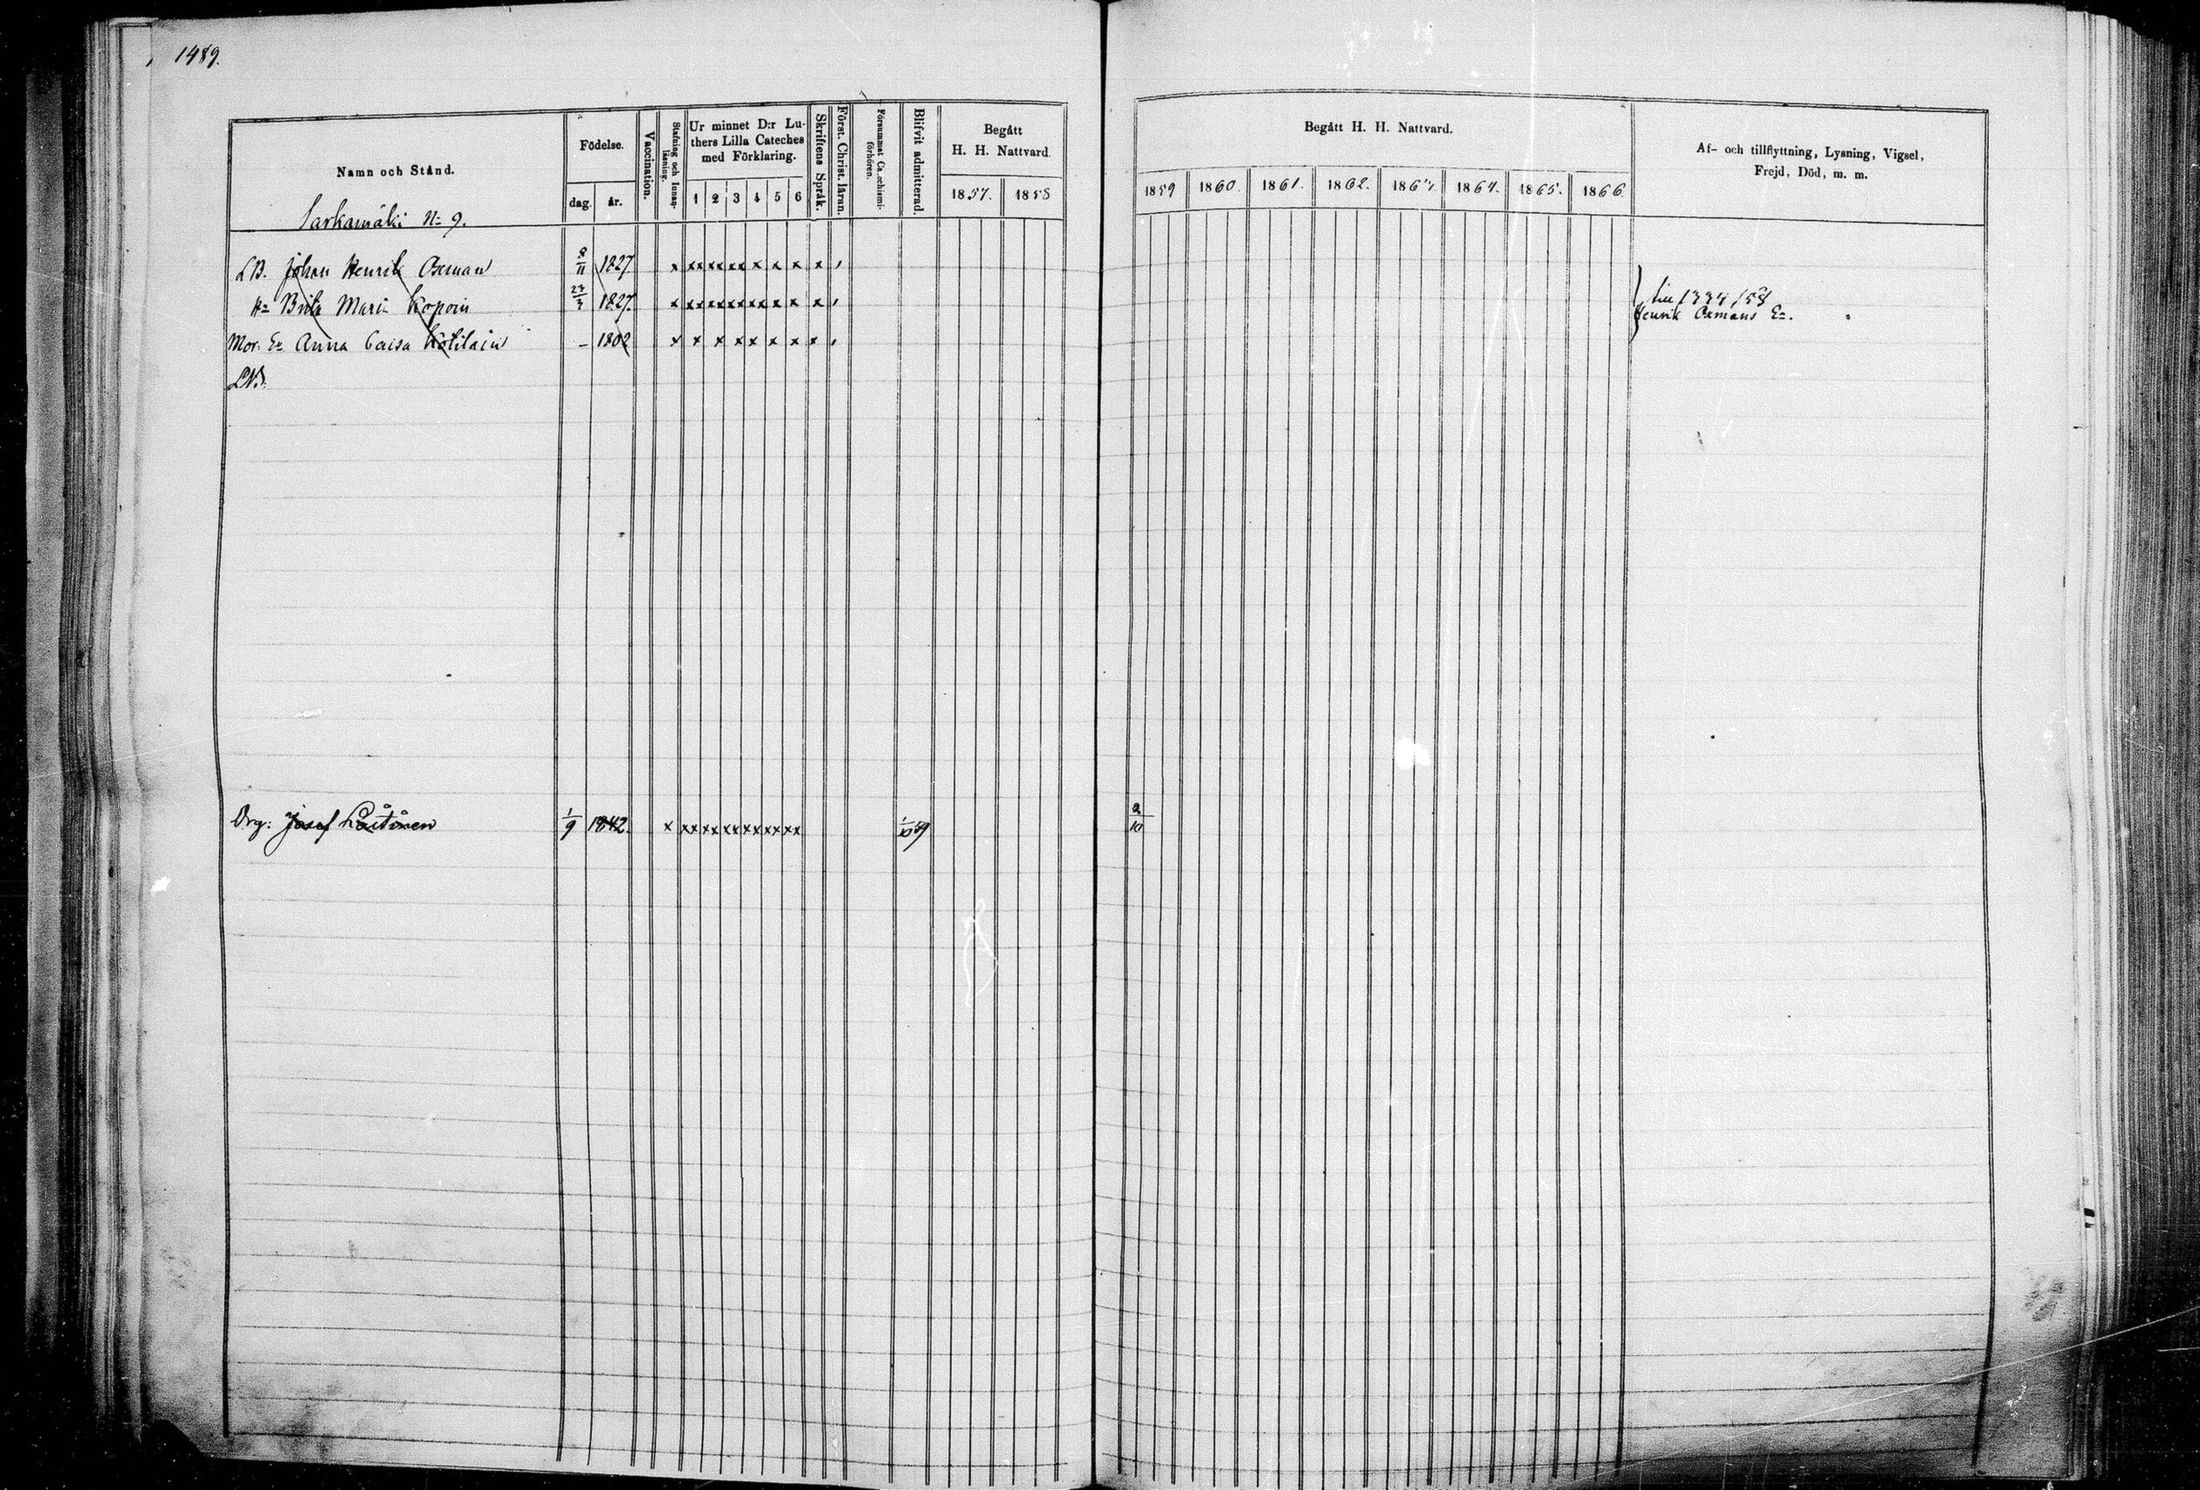 1489.
Namn och Stånd.
Födelse.
dag.
år.
Vaccination.
Stafning och Innanläsning.
Ur minnet D:r Luthers Lilla Cateches med Förklaring.
1 2 3 4 5 6
Skriftens Språk.
Först. Christ. läran.
Försummat Catechismiförhören.
Blifvit admitterad.
Begått
H. H. Nattvard.
1857. 1858
Begått H. H. Nattvard.
1859 1860. 1861. 1862. 1863. 1864. 1865. 1866.
Af- och tillflyttning, Lysning, Vigsel,
Frejd, Död, m. m.
Sarkamäki N= 9.
LB. Johan Henrik Oxman 8/11 1827 x xx xx xx x x x x ,
H= Brita Maria Kopoin 23/3 1827. x xx xx xx xx x x x ,
Mor. E= Anna Caisa Kötilain – 1802 x x x x x x x x ,
LB.
1334/58
Henrik Oxmans E=.
Drg: Josef 1/9 1842. x xx xx xx xx xx xx 1/10 59 2/10